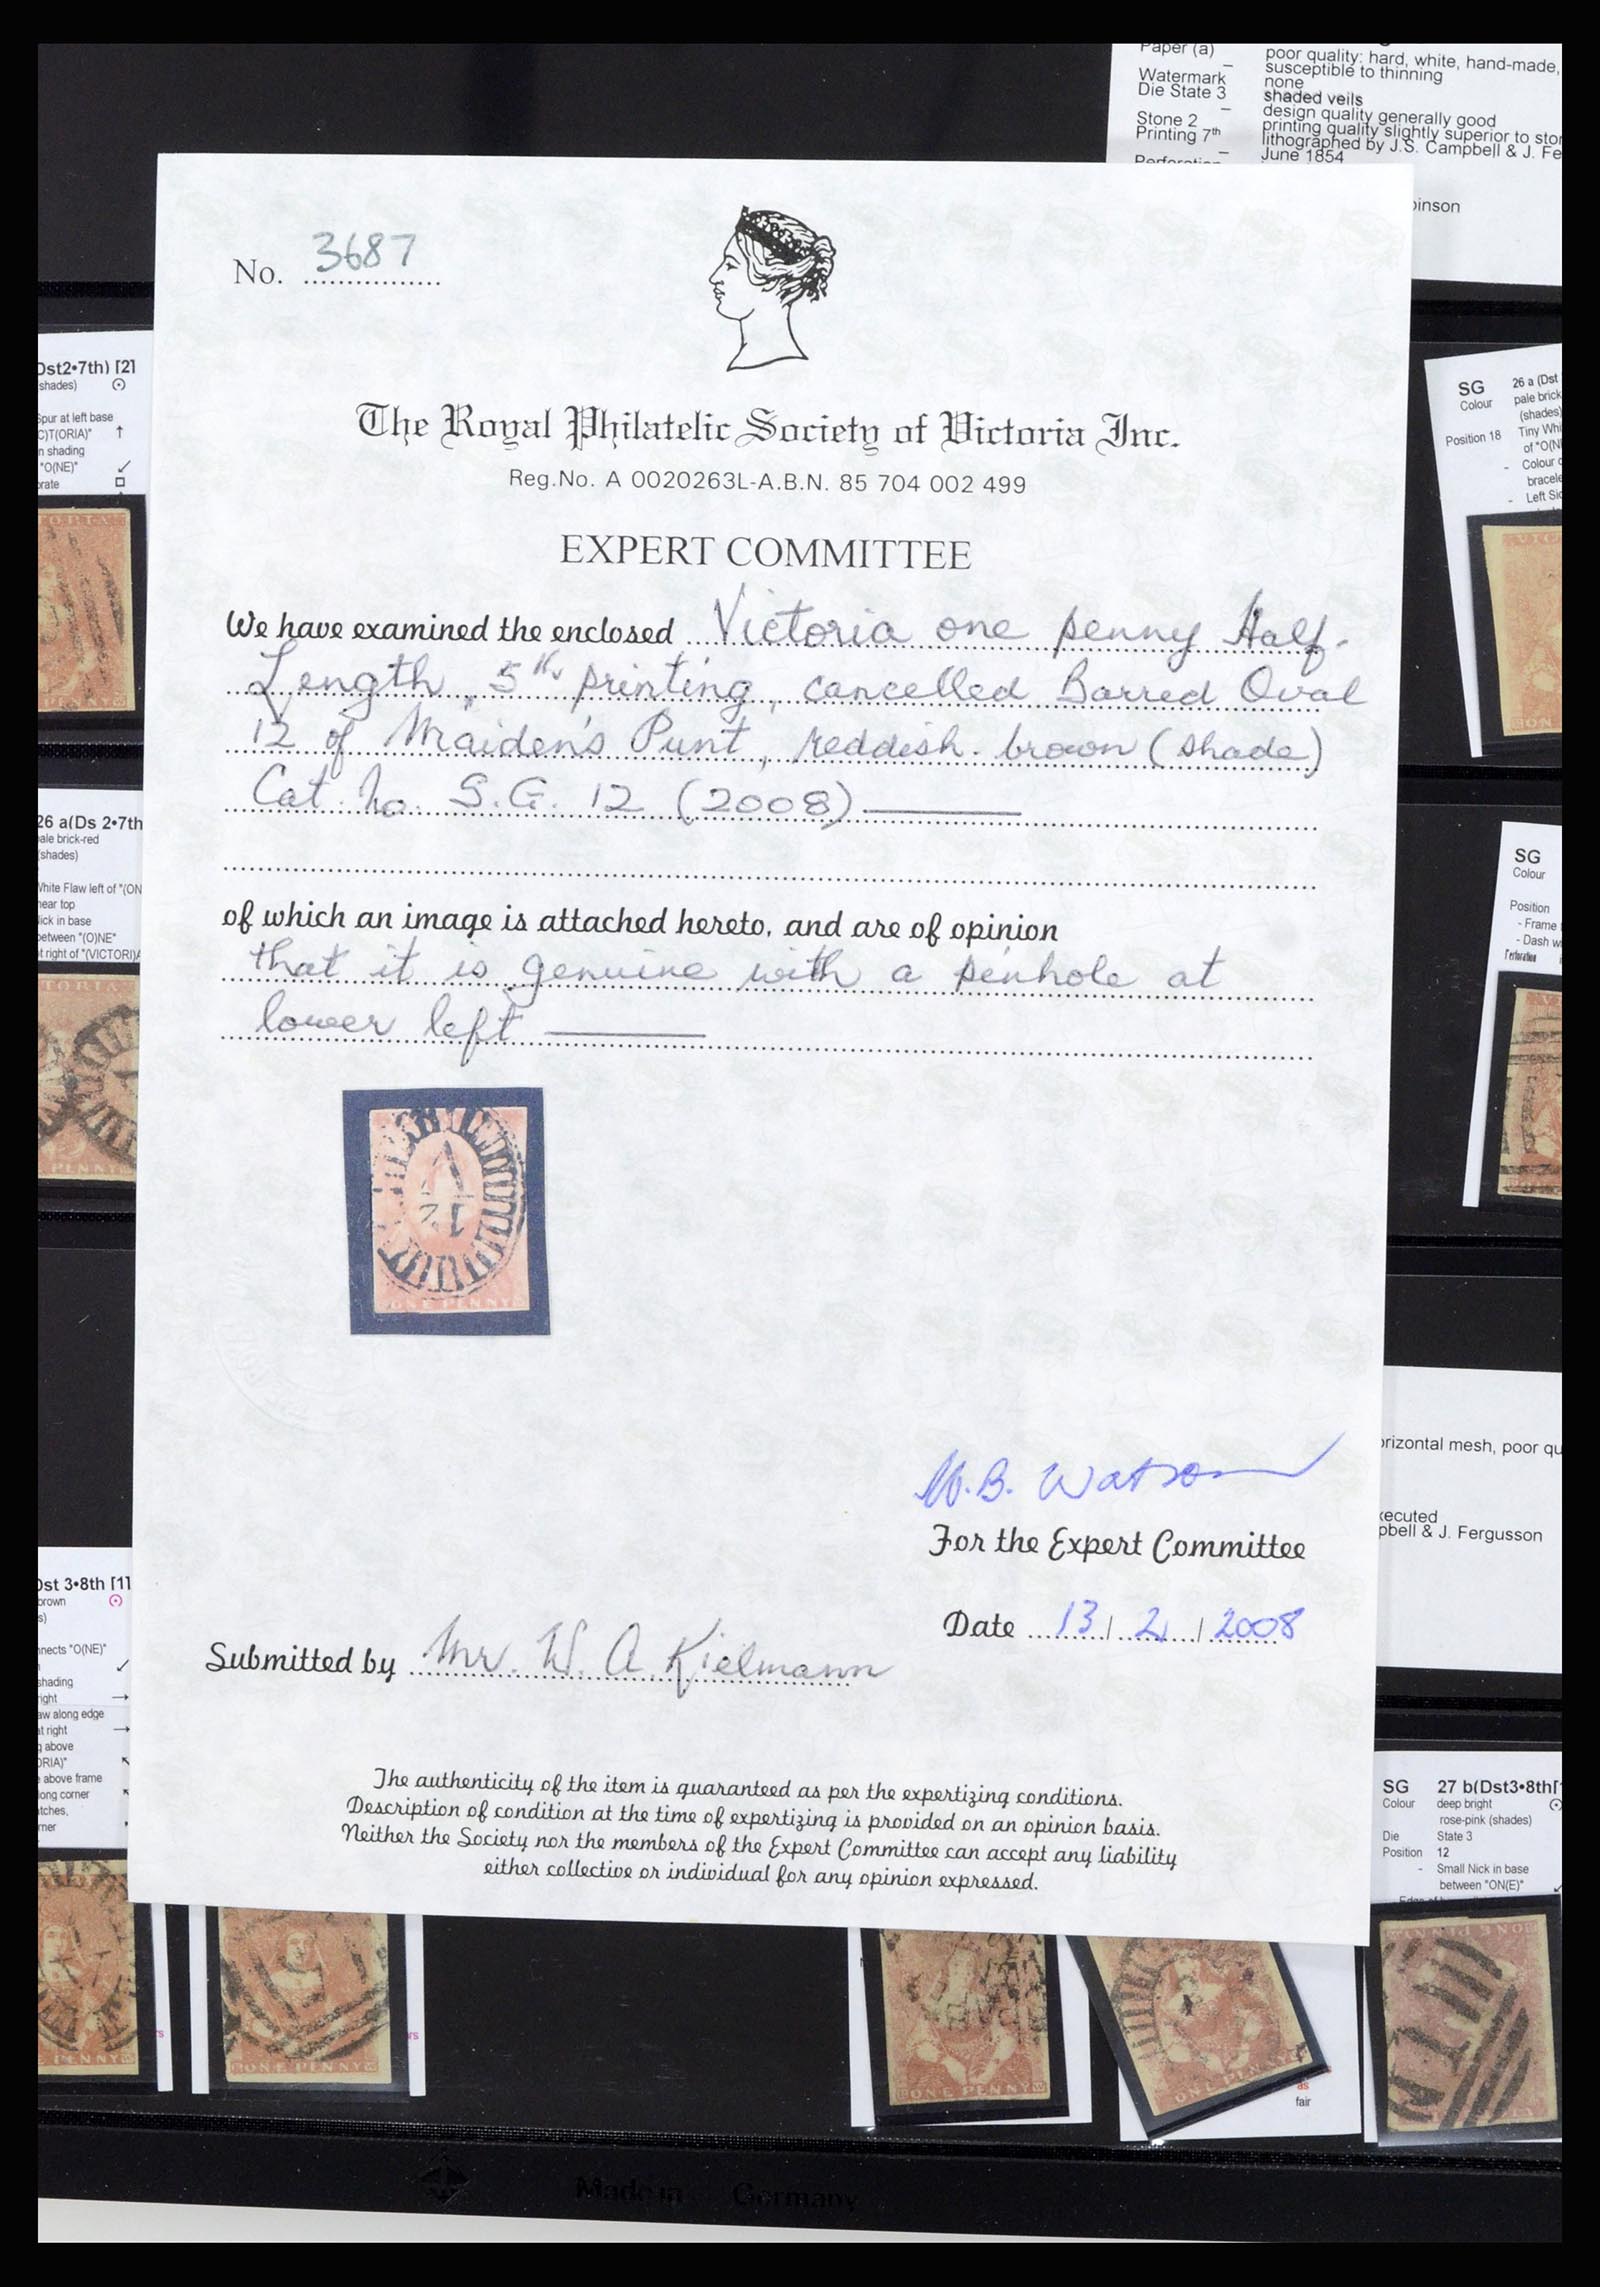 Paper (a)
poor quality: hard, white, hand-made,
susceptible to thinning
Watermark
none
Die State 3
shaded veils
design quality generally good
Stone 2
printing quality slightly superior to
Printing 7th
lithographed by J.S. Campbell & J.
June 1854
No. 3687
The Royal Philatelic Society of Victoria Inc.
Reg.No. A 0020263L-A.B.N. 85 704 002 499
EXPERT COMMITTEE
We have examined the enclosed Victoria one penny Half-
Length, 5th printing, cancelled Barred Oval
12 of Maiden's Punt, reddish-brown (shade)
Cat. No. S.G. 12 (2008)
of which an image is attached hereto, and are of opinion
that it is genuine with a pinhole at
lower left
12
ONE PENNY
M.B. Watson
For the Expert Committee
Date 13/2/2008
Submitted by Mr. W. A. Kielmann
The authenticity of the item is guaranteed as per the expertizing conditions.
Description of condition at the time of expertizing is provided on an opinion basis.
Neither the Society nor the members of the Expert Committee can accept any liability
either collective or individual for any opinion expressed.
Dst2•7th) [2]
(shades)
Spur at left base
C)T(ORIA)"
shading
"O(NE)"
26 a(Ds 2•7th
pale brick-red
(shades)
White Flaw left of "(ON
near top
in base
between "(O)NE"
right of "(VICTORI)A
TORIA
PENNY
Dst 3•8th [1]
brown
"O(NE)"
shading
right
along edge
at right
above
above frame
along corner
SG 26 a (Dst
Colour pale brick
(shades)
Position 18 Tiny
of "O(N
- Colour
- Left
SG
Colour
Position
- Frame
- Dash
Perforation
horizontal mesh, poor
executed
& J. Fergusson
SG 27 b(Dst3•8th
Colour deep bright
rose-pink (shades)
Die State 3
Position 12
- Small Nick in base
between "ON(E)"
PENNY
ONE PENNY
ONE PENNY
ONE PENNY
as
fair
Made in Germany